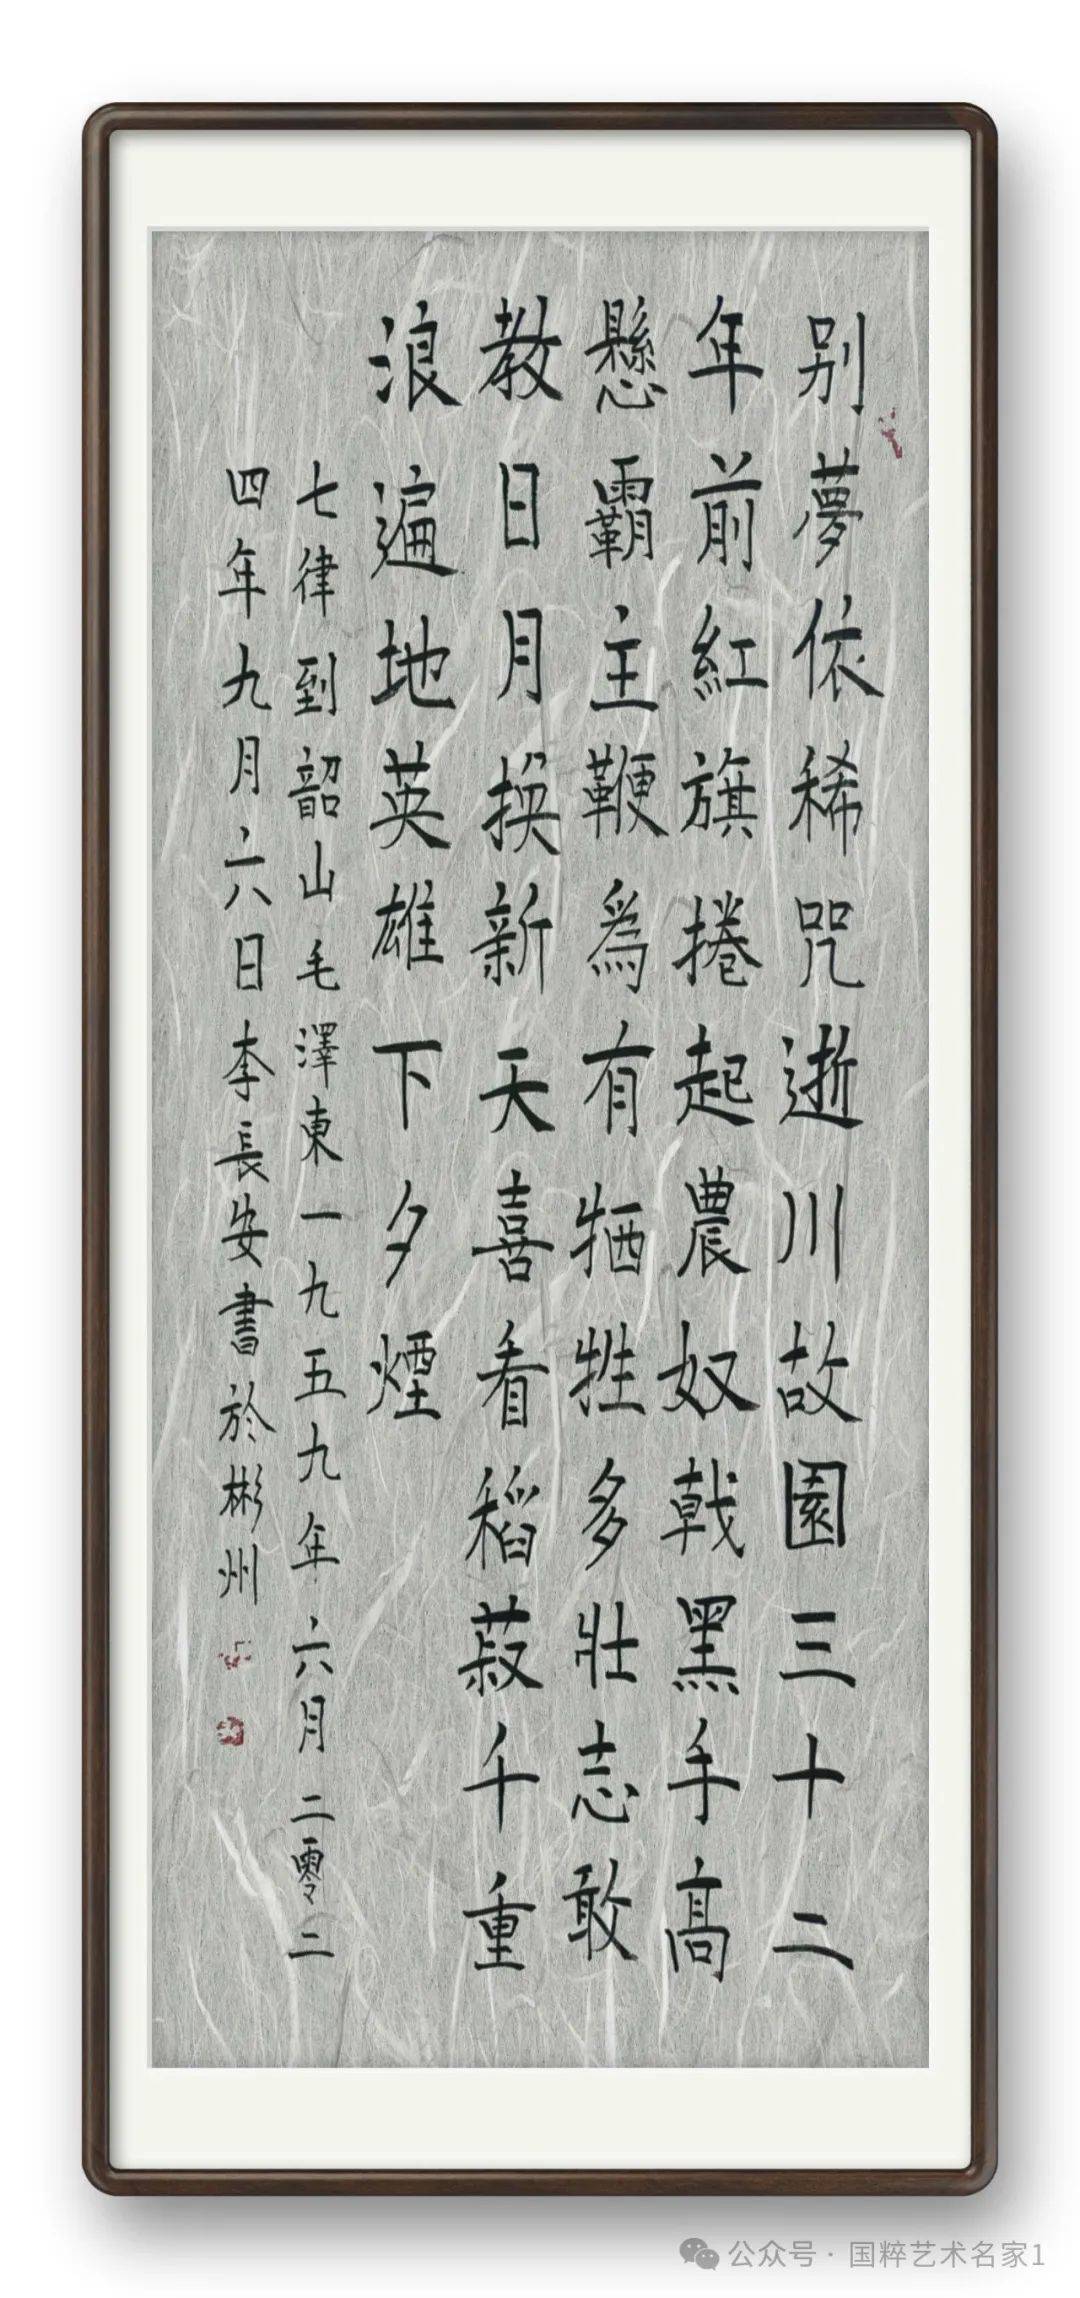 别夢依稀咒逝川故園三十二
年前紅旗捲起農奴戟黑手高
懸霸主鞭為有犧牲多壯志敢
教日月換新天喜看稻菽千重
浪遍地英雄下夕煙
七律到韶山毛澤東一九五九年六月二零二
四年九月六日李長安書於彬州
公众号·国粹艺术名家1